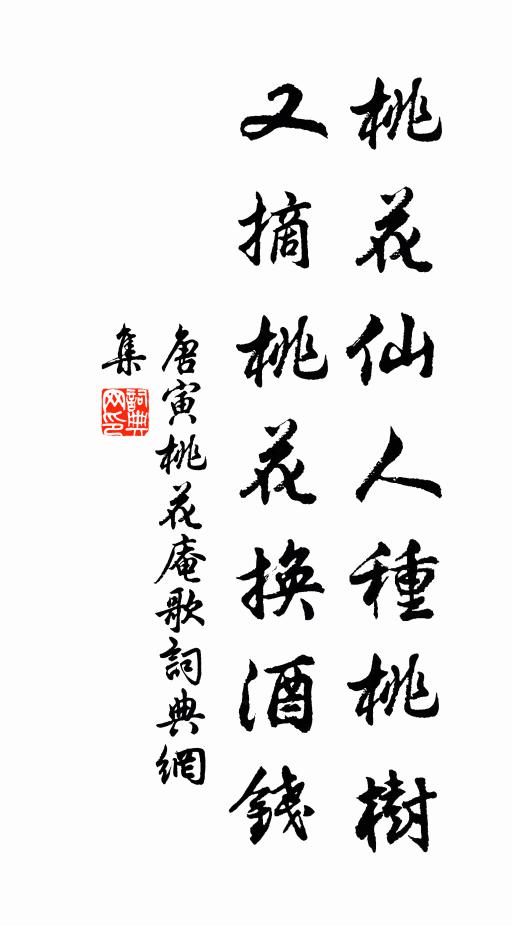 桃花仙人種桃樹
又摘桃花換酒錢
唐寅桃花庵歌詞典網
集
詞典
网印